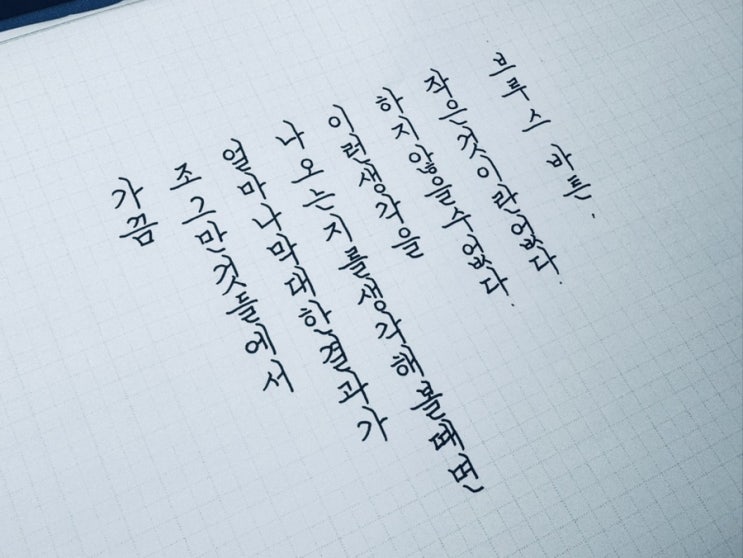 가끔
조그만 것들에서
얼마나 막대한 결과가
나오는지를 생각해 볼 때면
이런 생각을
하지 않을 수 없다.
작은 것이란 없다.
브루스 바튼.